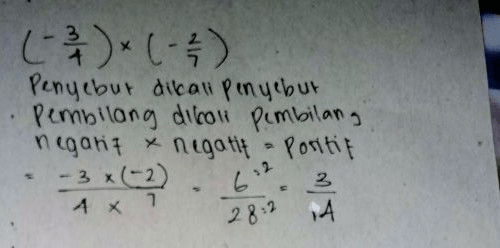 (- 3/4) × (- 2/7)
Penyebut dikali penyebut
Pembilang dikali pembilang
negatif × negatif = Positif
= -3 × (-2) / 4 × 7 = 6 :2 / 28 :2 = 3 / 14